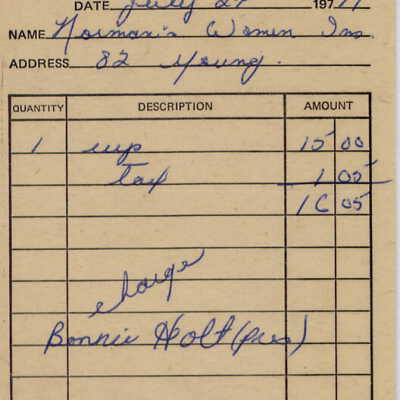 DATE July 27 1977
NAME Norman's Women Ins.
ADDRESS 82 Young.
QUANTITY DESCRIPTION AMOUNT
1 cup 15 00
tax 1 05
16 05
charge
Bonnie Holt (pres)